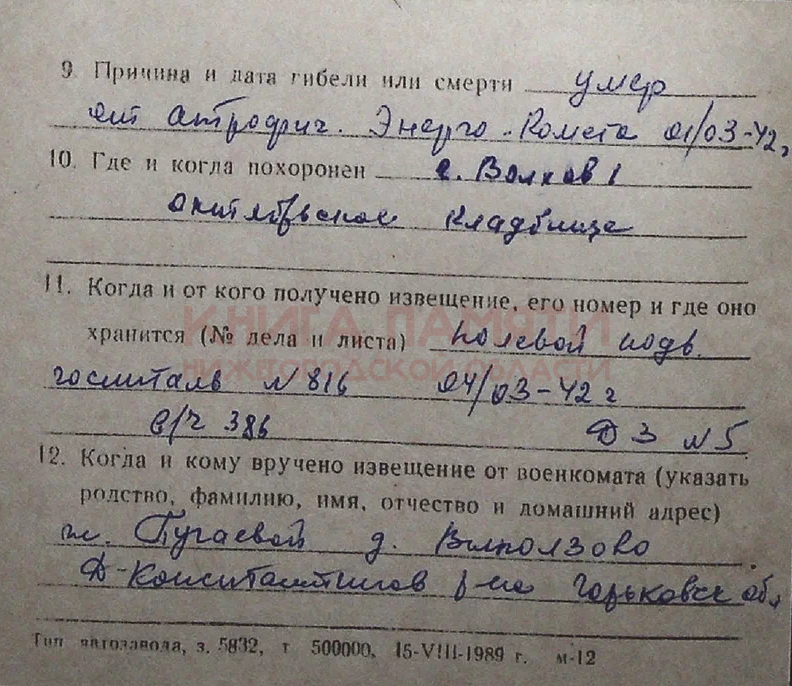 9. Причина и дата гибели или смерти умер
от атрофич. Энтеро-Колита 01/03-42,
10. Где и когда похоронен г. Волхов 1
октябрьское кладбище
11. Когда и от кого получено извещение, его номер и где оно
КНИГА ПАМЯТИ
хранится (№ дела и листа) полевой подв.
НИЖЕГОРОДСКОЙ ОБЛАСТИ
госпиталь №816 04/03-42 г
в/ч 386 Д 3 №5
12. Когда и кому вручено извещение от военкомата (указать
родство, фамилию, имя, отчество и домашний адрес)
ж. Пугаевой д. Выползово
Д-Константинов р-на Горьковск обл
Тип. автозавода, з. 5832, т 500000, 15-VIII-1989 г. м-12